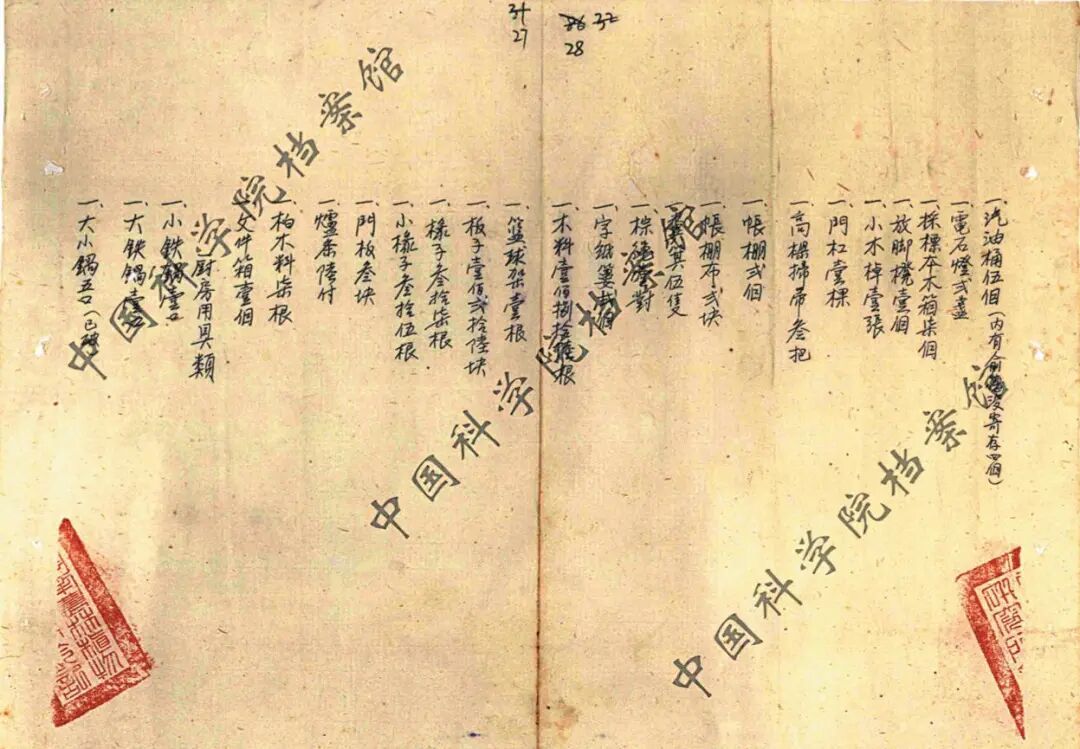 31
27
86 32
28
一、汽油桶伍個（內有俞 没寄存四個）
一、電石燈弍盞
一、採棵本木箱柒個
一、放脚櫈壹個
一、小木棹壹張
一、門杠壹棵
一、高樑掃帚叁把
一、帳棚弍個
一、帳棚布弍块
一、 箕伍隻
一、棕 對
一、字紙簍弍個
一、木料壹佰捌拾 根
一、籃球架壹根
一、板子壹佰弍拾陸块
一、椽子叁拾柒根
一、小椽子叁拾伍根
一、門板叁块
一、爐条陸付
一、柏木料柒根
一、文件箱壹個
厨房用具類
一、小鉄鍋壹口
一、大鉄鍋壹口
一、大小鍋五口（已破
中国科学院档案馆
中国科学院档案馆
中国科学院档案馆